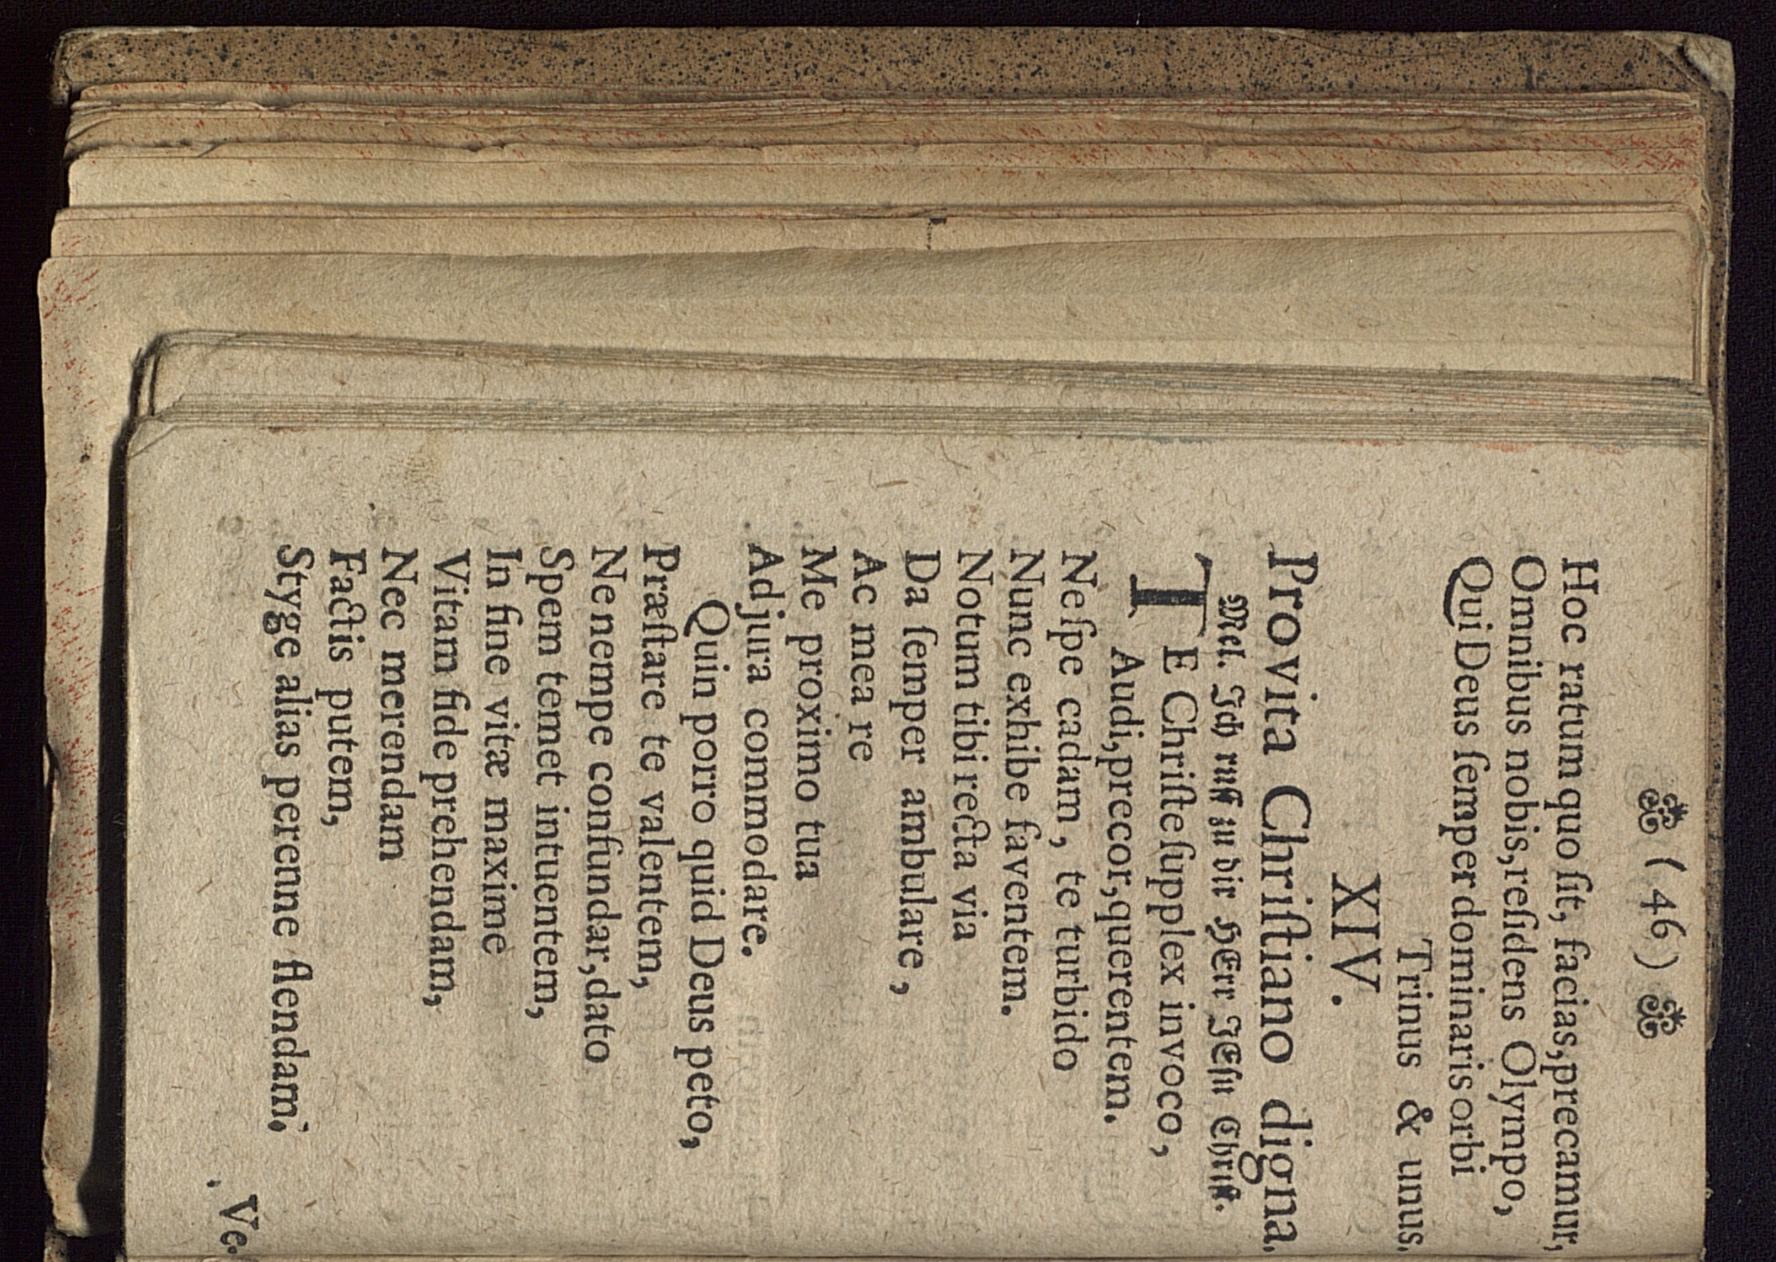 ( 46 )
Hoc ratum quo ſit, facias, precamur,
Omnibus nobis, reſidens Olympo,
Qui Deus ſemper dominaris orbi
Trinus & unus.
XIV.
Pro vita Chriſtiano digna.
Mel. Ich ruff zu dir HErr JEſu Chriſt.
TE Chriſte ſupplex invoco,
Audi, precor, querentem.
Ne ſpe cadam, te turbido
Nunc exhibe faventem.
Notum tibi recta via
Da ſemper ambulare,
Ac mea re
Me proximo tua
Adjura commodare.
Quin porro quid Deus peto,
Præſtare te valentem,
Ne nempe confundar, dato
Spem temet intuentem,
In fine vitæ maxime
Vitam fide prehendam,
Nec merendam
Factis putem,
Styge alias perenne flendam.
Ve-